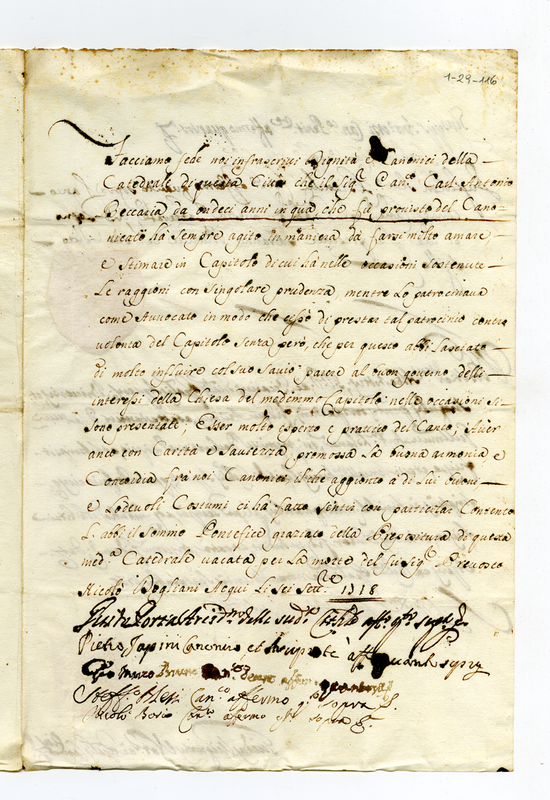 1-29-116
Facciamo fede noi infrascritti Dignità e Canonici della
Catedrale di questa Città che il Sig.r Can.co Carl Antonio
Beccaria da ondeci anni in quà che fu provisto del Cano-
nicato hà sempre agito in maniera da farsi molto amare
e stimare in Capitolo di cui hà nelle occasioni sostenute
le raggioni con singolare prudenza, mentre lo patrocinava
come Avvocato in modo che esso di prestar tal patrocinio contro
volontà del Capitolo senza però, che per questo abbi lasciato
di molto influire col suo savio parere al buon governo delli
interessi della Chiesa del medemmo Capitolo nelle occasioni si
sono presentate; Esser molto esperto e prattico del Canto; Aver
anco con Carità e saviezza promossa la buona armonia e
Concordia frà noi Canonici, il che aggionto à di Lui buoni
e Lodevoli Costumi ci hà fatto sentir con particolar Contento
L'abbi il sommo Pontefice graziato della Prepositura di questa
med.a Catedrale vacata per la morte del fù Sig.r Prevosto
Nicolò Dogliani Acqui Li sei Sett.re 1718
Porta Arcid.no della sud.a Cattedrale aff.o q.to sopra
Pietro Canonico et Arciprete affermo quanto sopra
Can.co affermo quanto sopra
Can.co affermo q.to sopra
Nicolò Bosio Can.co affermo q.to sopra